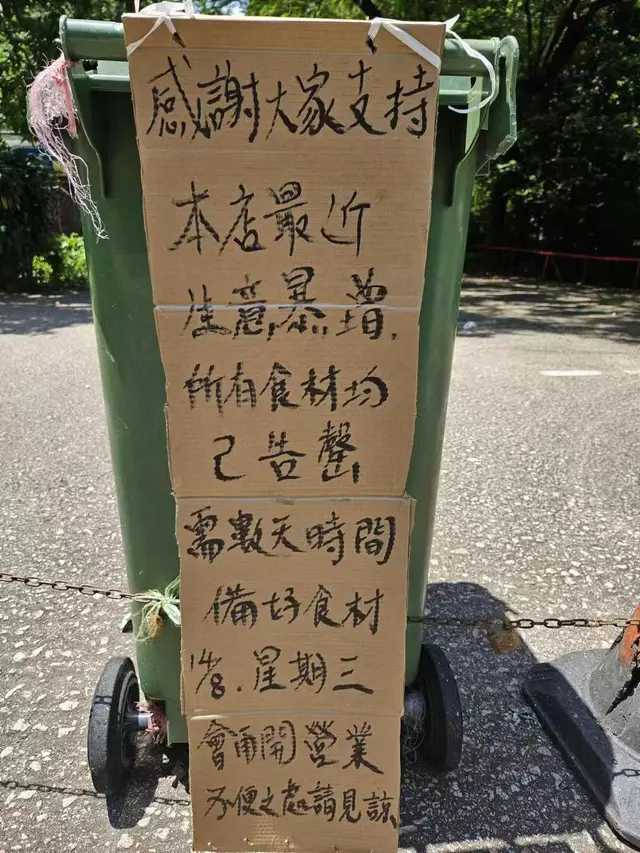 感謝大家支持
本店最近
生意暴增,
所有食材均
已告罄
需數天時間
備好食材
14/8.星期三
會再開營業
不便之處請見諒